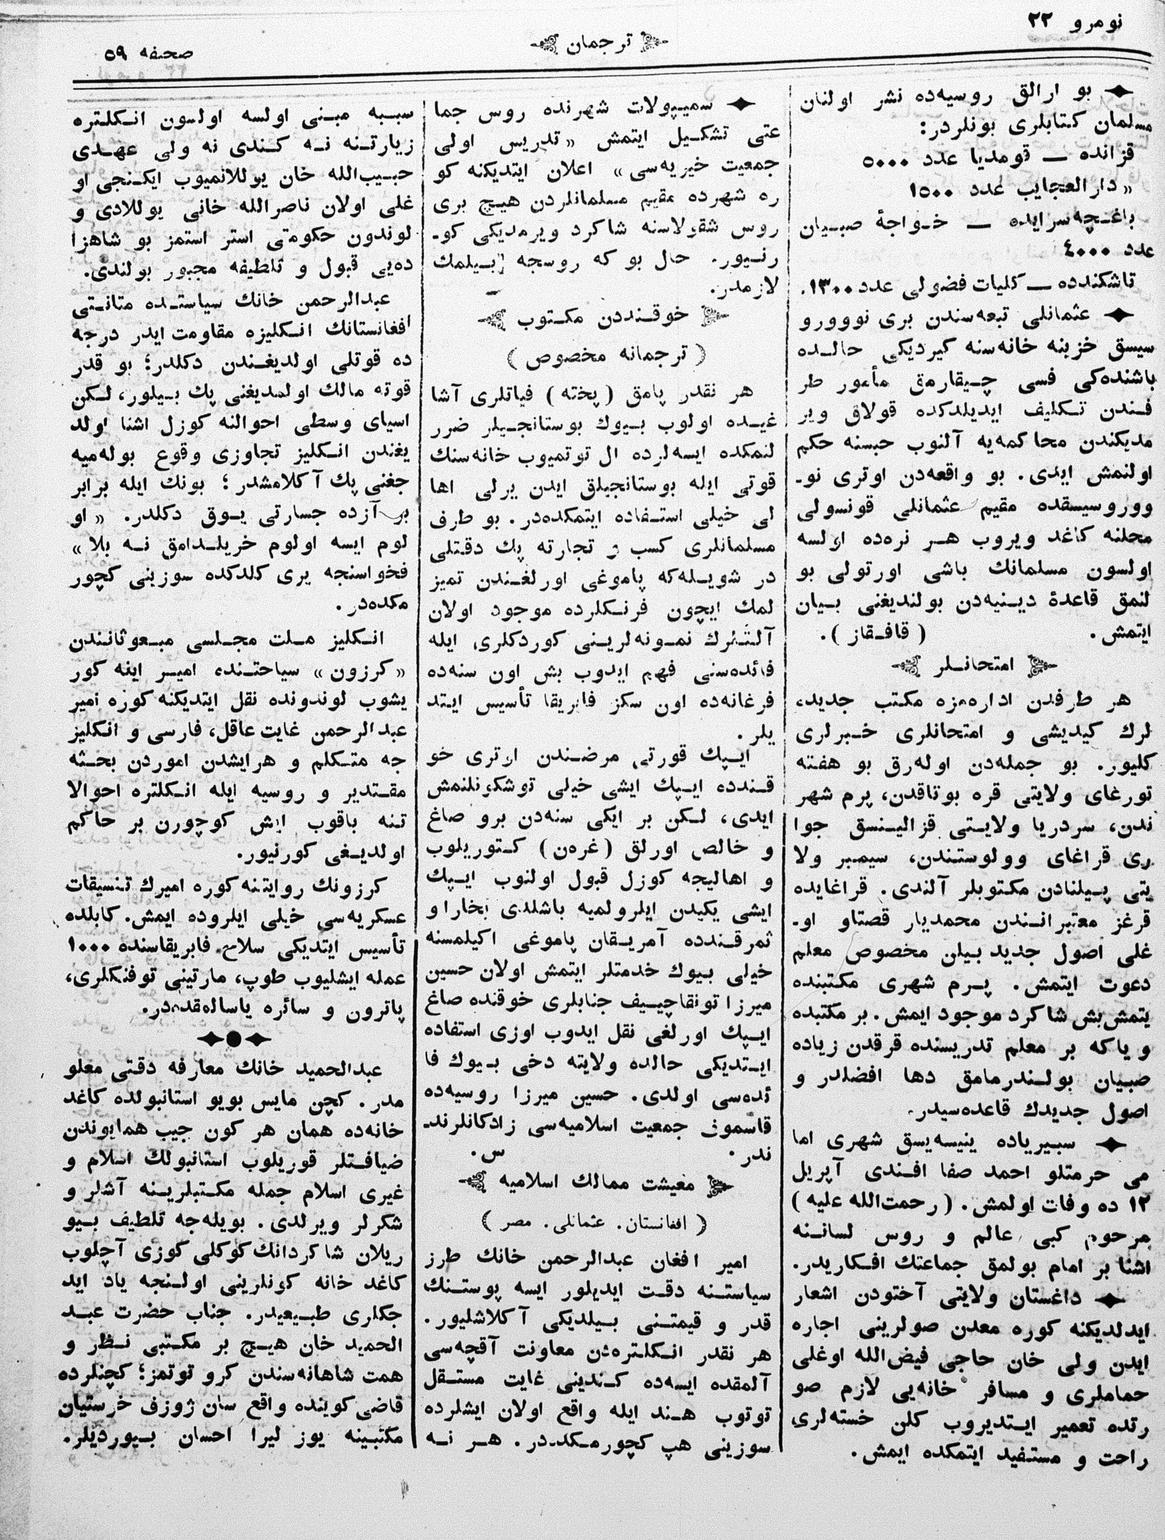 نومرو ٢٢
ترجمان
صحیفه ٥٩
بو ارالق روسیه‌ده نشر اولنان
مسلمان کتابلری بونلردر:
قزانده — قومدیا عدد ٥٠٠٠
« دار العجایب عدد ١٥٠٠
باغچه‌سرایده — خواجهٔ صبیان
عدد ٤٠٠٠
تاشکندده — کلیات فضولی عدد ١٣٠٠.
عثمانلی تبعه‌سندن بری نووورو
سیسق خزینه خانه‌سنه کیردیکی حالده
باشنده‌کی فسی چیقارمق مأمور طر
فندن تکلیف ایدیلدکده قولاق ویر
مدیکندن محاکمه‌یه آلنوب حبسنه حکم
اولنمش ایدی. بو واقعه‌دن اوتری نو-
ووروسیسقده مقیم عثمانلی قونسولی
محلنه کاغد ویروب هر نره‌ده اولسه
اولسون مسلمانك باشی اورتولی بو
لنمق قاعدهٔ دینیه‌دن بولندیغنی بیان
ایتمش. ( قافقاز ).
امتحانلر
هر طرفدن اداره‌مزه مکتب جدید،
لرك کیدیشی و امتحانلری خبرلری
کلیور. بو جمله‌دن اوله‌رق بو هفته
تورغای ولایتی قره بوتاقدن، پرم شهر
ندن، سردریا ولایتی قزالینسق جوا
ری قراغای وولوستندن، سیمبر ولا
یتی پیلنادن مکتوبلر آلندی. قراغایده
قرغز معتبرانندن محمدیار قصتاو او-
غلی اصول جدید بیلن مخصوص معلم
دعوت ایتمش. پرم شهری مکتبنده
یتمش‌بش شاکرد موجود ایمش. بر مکتبده
و یاکه بر معلم تدریسنده قرقدن زیاده
صبیان بولندرمامق دها افضلدر و
اصول جدیدك قاعده‌سیدر.
سبیریاده ینیسه‌یسق شهری اما
می حرمتلو احمد صفا افندی آپریل
١٢ ده وفات اولمش. ( رحمت‌الله علیه )
مرحوم کبی عالم و روس لسانه
اشنا بر امام بولمق جماعتك افکاریدر.
داغستان ولایتی آختودن اشعار
ایدلدیکنه کوره معدن صولرینی اجاره
ایدن ولی خان حاجی فیض‌الله اوغلی
حماملری و مسافر خانه‌یی لازم صو
رتده تعمیر ایتدیروب کلن خسته‌لری
راحت و مستفید ایتمکده ایمش.
سمیپولات شهرنده روس جما
عتی تشکیل ایتمش « تدریس اولی
جمعیت خیریه‌سی» اعلان ایتدیکنه کو
ره شهرده مقیم مسلمانلردن هیچ بری
روس شقولاسنه شاکرد ویرمدیکی کو-
رنیور. حال بو که روسجه بیلمك
لازمدر.
خوقنددن مکتوب
( ترجمانه مخصوص )
هر نقدر پامق ( پخته ) فیاتلری آشا
غیده اولوب بیوك بوستانجیلر ضرر
لنمکده ایسه‌لرده ال توتمیوب خانه‌سنك
قوتی ایله بوستانجیلق ایدن یرلی اها
لی خیلی استفاده ایتمکده‌در. بو طرف
مسلمانلری کسب و تجارته پك دقتلی
در شویله‌که پاموغی اورلغندن تمیز
لمك ایچون فرنکلرده موجود اولان
آلتلرك نمونه‌لرینی کوردکلری ایله
فائده‌سنی فهم ایدوب بش اون سنه‌ده
فرغانه‌ده اون سکز فابریقا تأسیس ایتد
یلر.
ایپك قورتی مرضندن اوتری خو
قندده ایپك ایشی خیلی توشکونلنمش
ایدی، لکن بر ایکی سنه‌دن برو صاغ
و خالص اورلق (غره‌ن) کتوریلوب
و اهالیجه کوزل قبول اولنوب ایپك
ایشی یکیدن ایلرولمیه باشلدی بخارا و
ثمرقندده آمریقان پاموغی اکیلمسنه
خیلی بیوك خدمتلر ایتمش اولان حسین
میرزا تونقاچییف جنابلری خوقنده صاغ
ایپك اورلغی نقل ایدوب اوزی استفاده
ایتدیکی حالده ولایته دخی بیوك فا
ئده‌سی اولدی. حسین میرزا روسیه‌ده
قاسموف جمعیت اسلامیه‌سی زادکانلرند
ندر. س.
معیشت ممالك اسلامیه
( افغانستان. عثمانلی. مصر )
امیر افغان عبدالرحمن خانك طرز
سیاستنه دقت ایدیلور ایسه پوستنك
قدر و قیمتنی بیلدیکی آکلاشلیور.
هر نقدر انکلتره‌دن معاونت آقچه‌سی
آلمقده ایسه‌ده کندینی غایت مستقل
توتوب هند ایله واقع اولان ایشلرده
سوزینی هپ کچورمکده‌در. هر نه
سببه مبنی اولسه اولسون انکلتره
زیارتنه نه کندی نه ولی عهدی
حبیب‌الله خان یوللانمیوب ایکنجی او
غلی اولان ناصرالله خانی یوللادی و
لوندون حکومتی استر استمز بو شاهزا
ده‌یی قبول و تلطیفه مجبور بولندی.
عبدالرحمن خانك سیاستده متانتی
افغانستانك انکلیزه مقاومت ایدر درجه
ده قوتلی اولدیغندن دکلدر؛ بو قدر
قوته مالك اولمدیغنی پك بیلور، لکن
اسیای وسطی احوالنه کوزل اشنا اولد
یغندن انکلیز تجاوزی وقوع بوله‌میه
جغنی پك آکلامشدر؛ بونك ایله برابر
بر آزده جسارتی یوق دکلدر. « او
لوم ایسه اولوم خریلدامق نه بلا »
فخواسنجه یری کلدکده سوزینی کچور
مکده‌در.
انکلیز ملت مجلسی مبعوثانندن
«کرزون» سیاحتنده امیر اینه کور
یشوب لوندونده نقل ایتدیکنه کوره امیر
عبدالرحمن غایت عاقل، فارسی و انکلیز
جه متکلم و هرایشدن اموردن بحثه
مقتدیر و روسیه ایله انکلتره احوالا
تنه باقوب ایش کوچورن بر حاکم
اولدیغی کورنیور.
کرزونك روایتنه کوره امیرك تنسیقات
عسکریه‌سی خیلی ایلروده ایمش. کابلده
تأسیس ایتدیکی سلاح فابریقاسنده ١٠٠٠
عمله ایشلیوب طوپ، مارتینی توفنکلری،
پاترون و سائره یاسالمقده‌در.
عبدالحمید خانك معارفه دقتی معلو
مدر. کچن مایس بویو استانبولده کاغد
خانه‌ده همان هر کون جیب همایوندن
ضیافتلر قوریلوب استانبولك اسلام و
غیری اسلام جمله مکتبلرینه آشلر و
شکرلر ویرلدی. بویله‌جه تلطیف بیو
ریلان شاکردانك کوکلی کوزی آچلوب
کاغد خانه کونلرینی اولنجه یاد اید
جکلری طبیعیدر. جناب حضرت عبد
الحمید خان هیچ بر مکتبی نظر و
همت شاهانه‌سندن کرو توتمز؛ کچنلرده
قاضی کوینده واقع سان ژوزف خرستیان
مکتبینه یوز لیرا احسان بیوردیلر.